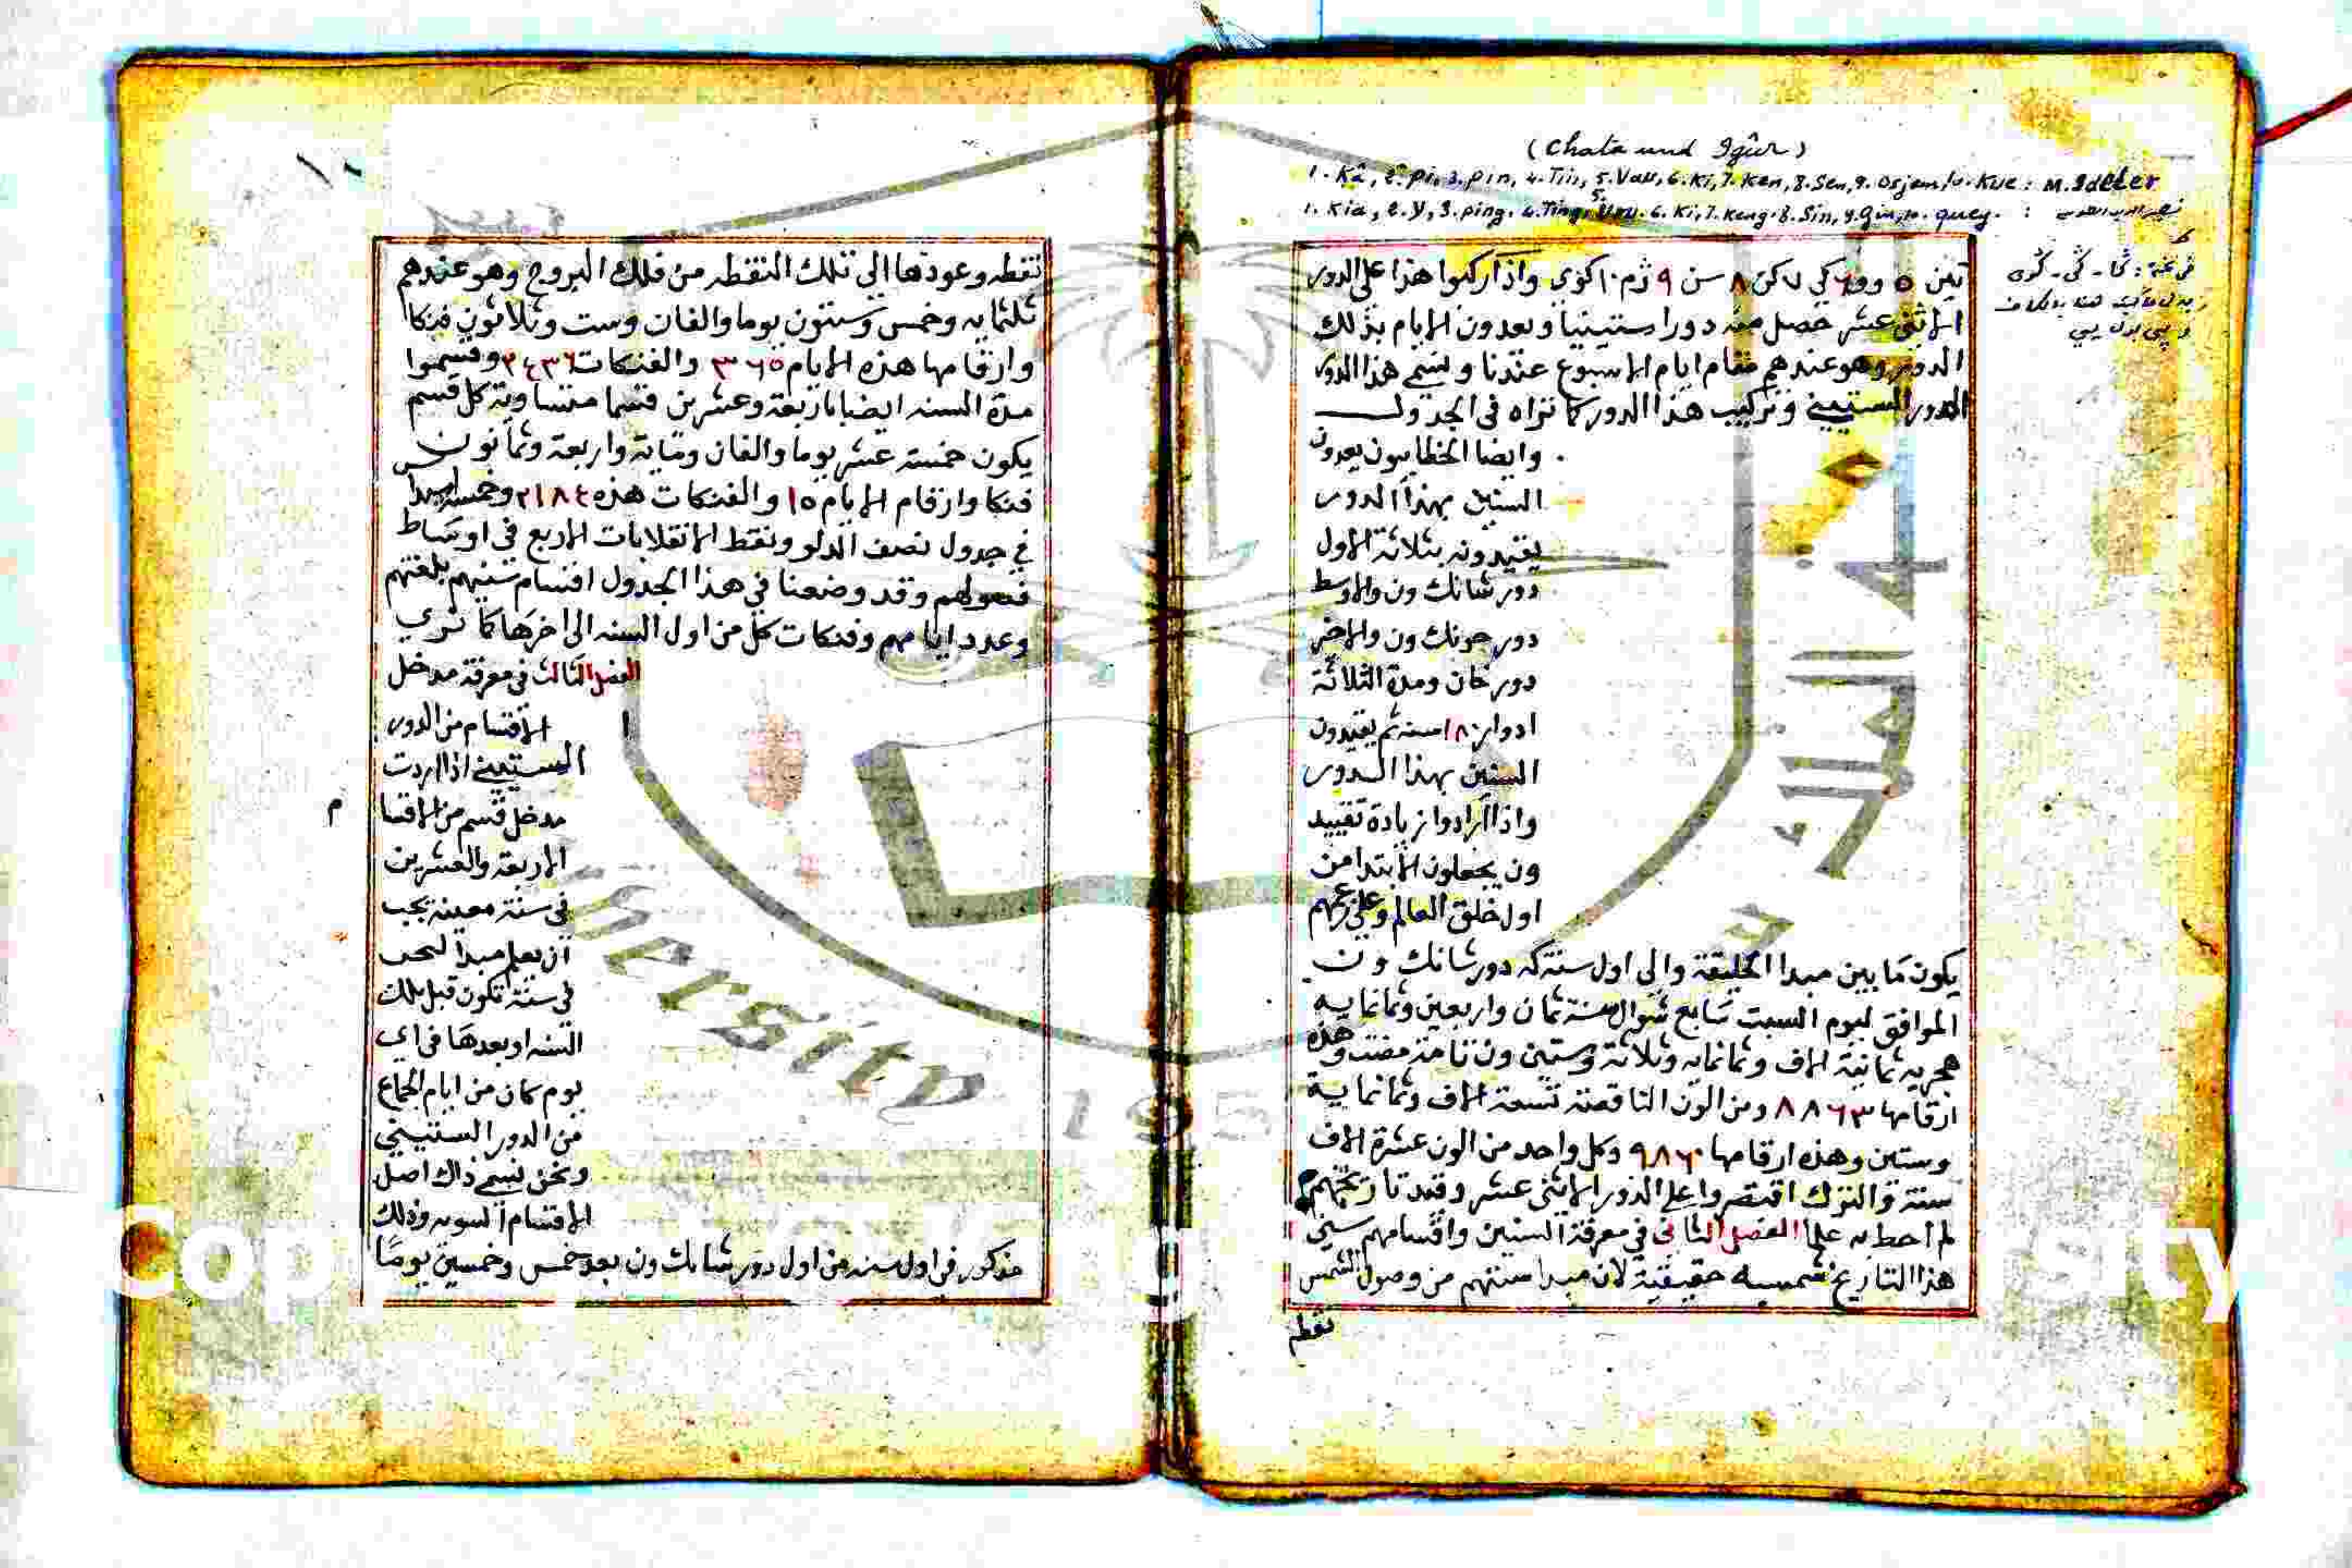 (Chata und Igûr)
1. Kâ, 2. pi, 3. pin, 4. Tin, 5. Vau, 6. Ki, 7. Ken, 8. Sen, 9. Osjem, 10. Kue : M. Ideler
1. Kia, 2. y, 3. ping, 4. Ting, 5. Vou, 6. Ki, 7. Keng, 8. Sin, 9. Gin, 10. quey. :
تين ٥ وو ٦ كي ٧ كن ٨ سن ٩ ژم ١٠ كوي واذا ركبوا هذا على الدور
الاثنى عشر حصل منه دورا ستينيا ويعدون الايام بذلك
الدور وهو عندهم مقام ايام الاسبوع عندنا ويسمى هذا الدور
الدور الستيني وتركيب هذا الدور كما تراه في الجدول
وايضا الخطاييون يعدون
السنين بهذا الدور
يقيدونه بثلاثة الاول
دور شانك ون والاوسط
دور جونك ون والاخر
دور خان ومدة الثلاثة
ادوار ١٨٠ سنه ثم يقيدون
السنين بهذا الدور
واذا ارادوا زيادة تقييد
ون يجعلون الابتدا من
اول خلق العالم وعلى زعمهم
يكون ما بين مبدا الخليقة والى اول سنة كه دور شانك ون
الموافق ليوم السبت سابع شوال سنة ثمان واربعين وثمانمايه
هجريه ثمانية الاف وثمانمايه وثلاثة وستين ون تامة مضت وهذه
ارقامها ٨٨٦٣ ومن الون الناقصة تسعة الاف وثمانماية
وستين وهذه ارقامها ٩٨٦٠ وكل واحد من الون عشرة الاف
سنة والترك اقتصروا على الدور الاثنى عشر وقيد تاريخهم
لم احط به علما الفصل الثاني في معرفة السنين واقسامهم سني
هذا التاريخ شمسيه حقيقية لان مبدا سنتهم من وصول الشمس
نقطه
١٠
نقطه وعودها الى تلك النقطه من فلك البروج وهو عندهم
ثلثمايه وخمس وستون يوما والفان وست وثلاثون فنكا
وارقامها هذه الايام ٣٦٥ والفنكات ٢٤٣٦ وقسموا
مدة السنه ايضا باربعة وعشرين قسما متساوية كل قسم
يكون خمسة عشر يوما والفان وماية واربعة وثمانون
فنكا وارقام الايام ١٥ والفنكات هذه ٢١٨٤ وخمسه اسدا
في جدول نصف الدلو ونقط الانقلابات الاربع في اوساط
فصولهم وقد وضعنا في هذا الجدول اقسام سنينهم بلغتهم
وعدد ايامهم وفنكات كل من اول السنه الى اخرها كما ترى
الفصل الثالث في معرفة مدخل
الاقسام من الدور
الستيني اذا اردت
مدخل قسم من الاقسا
م
الاربعة والعشرين
في سنة معينة يجب
ان يعلم مبدا
في سنة تكون قبل تلك
السنه او بعدها في اي
يوم كان من ايام
من الدور الستيني
ونحن نسمي ذاك اصل
الاقسام السويه وذلك
مذكور في اول سنه من اول دور شانك ون بعد خمس وخمسين يوما